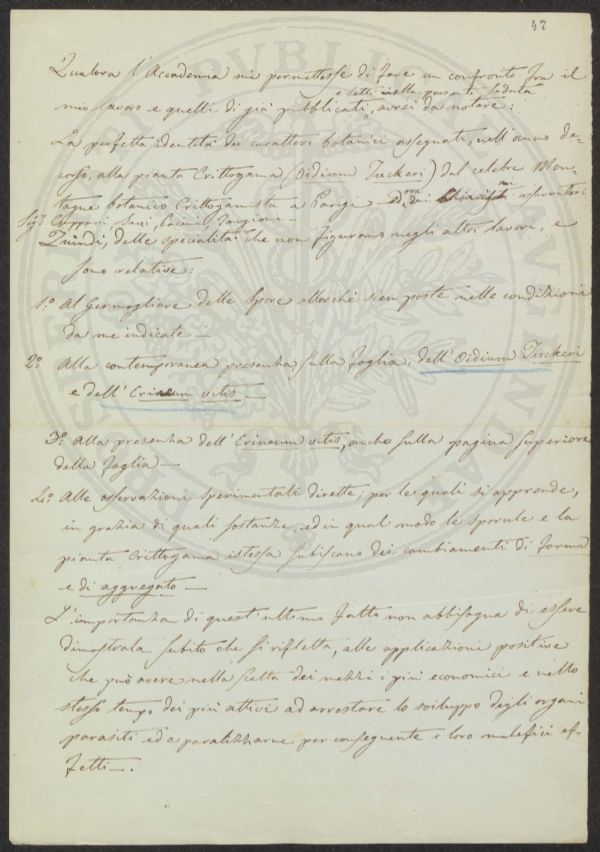 47
Qualora l'Accademia mi permettesse di fare un confronto fra il
e letti nella presente seduta
mio lavoro e quelli di già pubblicati, avrei da notare:
La perfetta identità dei caratteri botanici assegnati, nell'anno de-
corso, alla pianta Crittogama (Oidium Tuckeri) dal celebre Mon-
tagne botanico Crittogamista a Parigi
Quindi, delle specialità che non figurano negli altri lavori, e
sono relative:
1.° Al Germogliare delle Spore allorchè sien poste nelle condizioni
da me indicate —
2.° Alla contemporanea presenza sulla foglia, dell'Oidium Tuckeri
e dell'Erineum vitis —
3.° Alla presenza dell'Erineum vitis, anche sulla pagina superiore
della foglia —
4.° Alle osservazioni sperimentali dirette; per le quali si apprende,
in grazia di quali sostanze, ed in qual modo le sporule e la
pianta Crittogama istessa subiscano dei cambiamenti di forma
e di aggregato —
L'importanza di quest'ultimo fatto non abbisogna di essere
dimostrata subito che si rifletta, alle applicazioni positive
che può avere nella scelta dei mezzi i più economici e nello
stesso tempo dei più attivi ad arrestare lo sviluppo degli organi
parasiti ed a paralizzarne per conseguente i loro malefici ef-
fetti —.